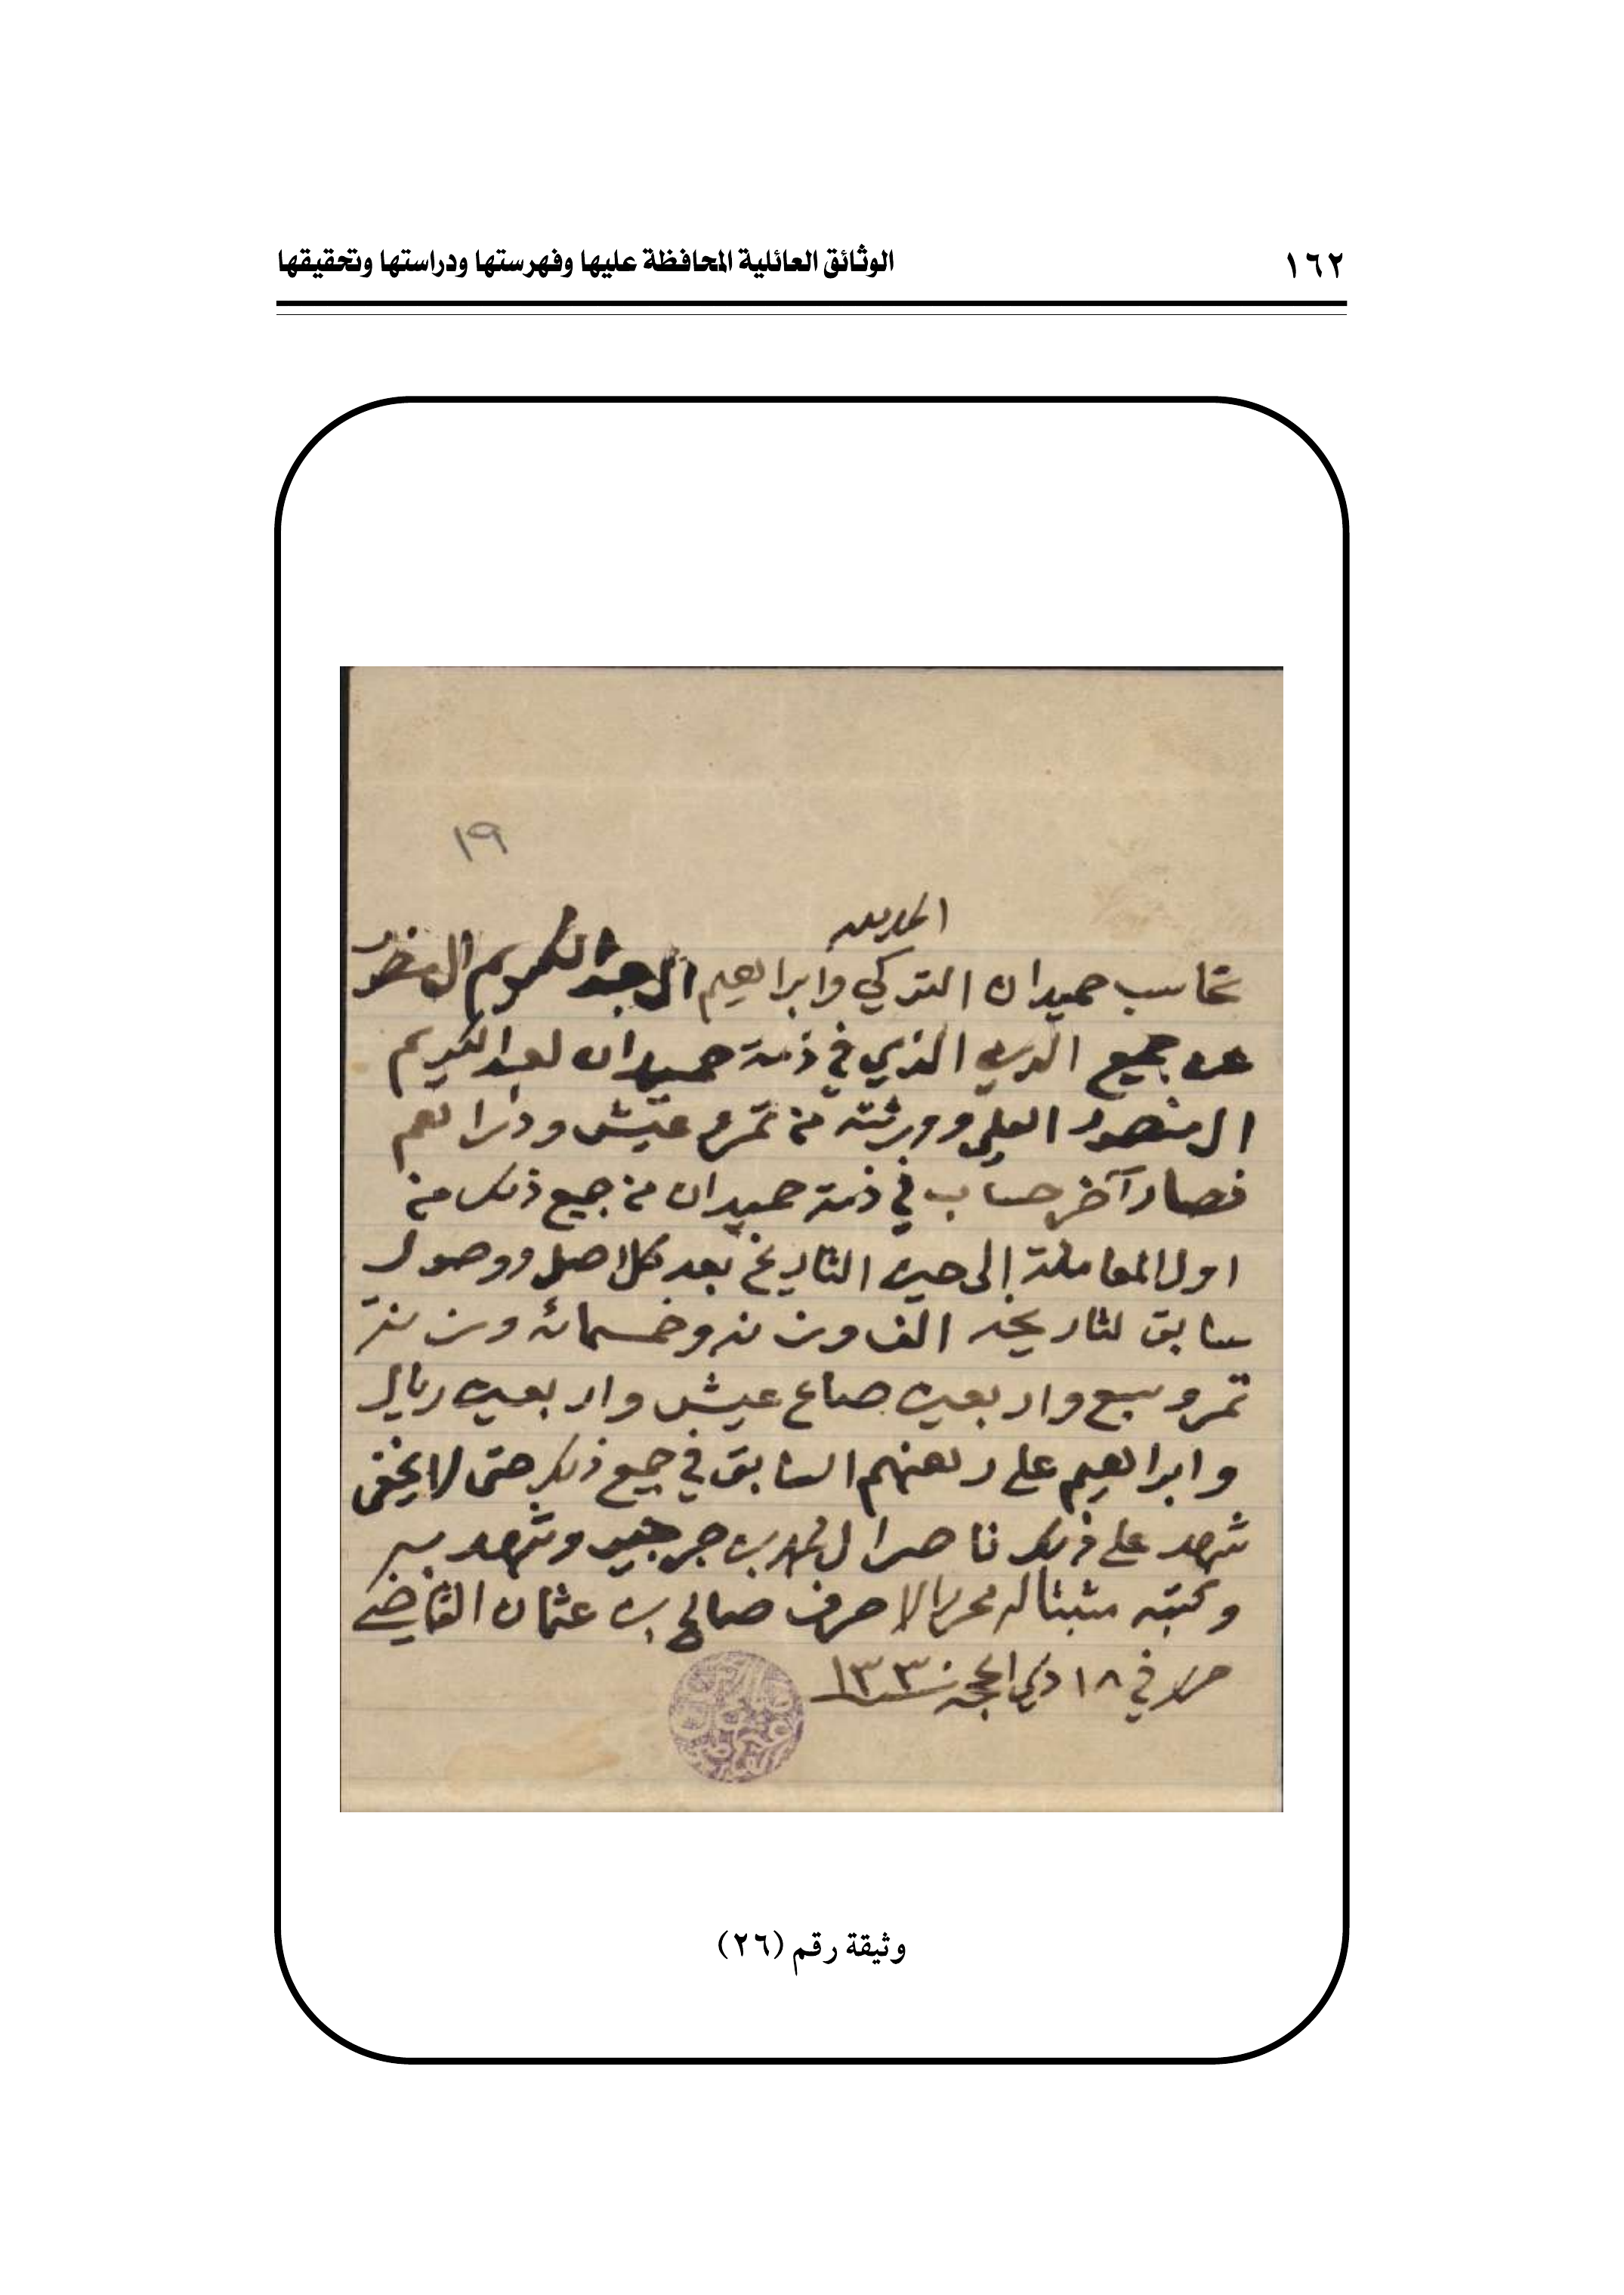 ١٦٢
الوثائق العائلية المحافظة عليها وفهرستها ودراستها وتحقيقها
١٩
الحمد لله
تحاسب حميدان التركي وابراهيم ال عبد الكريم المنصور
عن جميع الدين الذي في ذمة حميدان لعبد الكريم
ال منصور العلي وورثته من تمر وعيش ودراهم
فصار آخر حساب في ذمة حميدان من جميع ذلك من
اول المعاملة إلى حين التاريخ بعد كل اصل ووصول
سابق لتاريخه الف وزنه وخمسمائه وزنة
تمر وسبع واربعين صاع عيش واربعين ريال
وابراهيم على رهنهم السابق في جميع ذلك حتى لا يخفى
شهد على ذلك ناصر ال محمد بن جرجير وشهد به
وكتبه مثبتا له محررا لاحرف صالح بن عثمان القاضي
حرر في ١٨ ذي الحجة سنة ١٣٣٠
وثيقة رقم (٢٦)